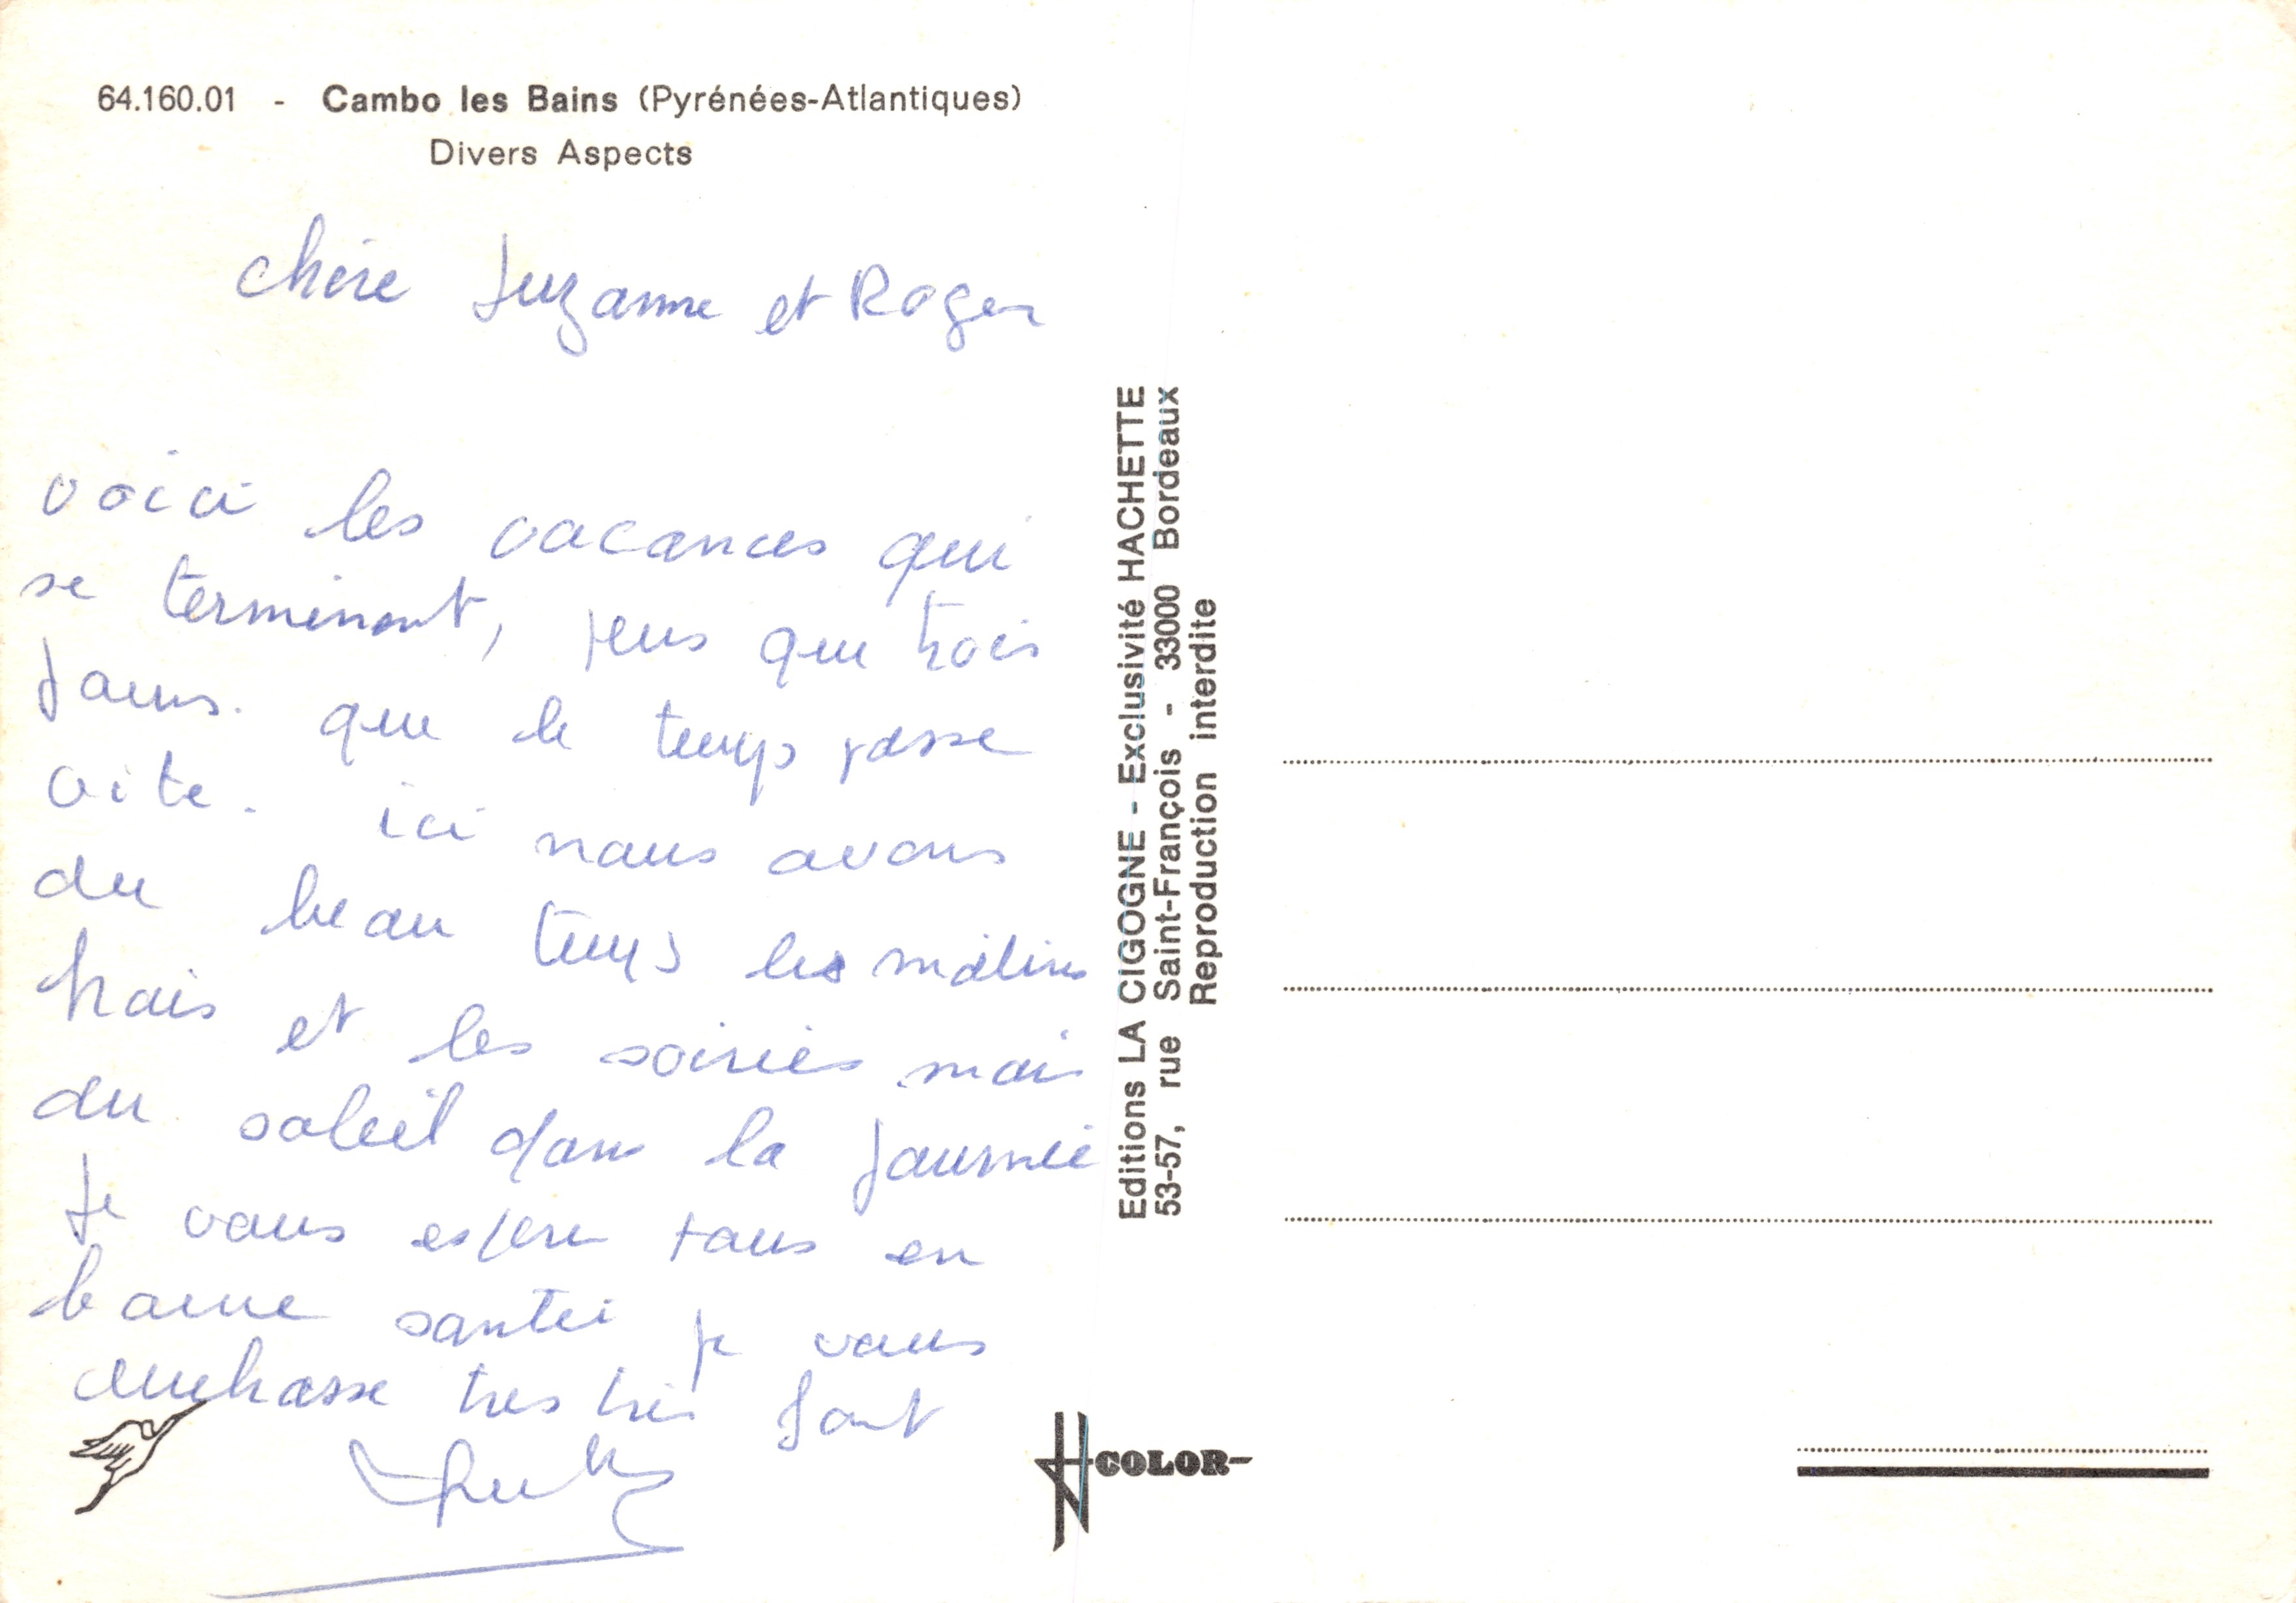 64.160.01 - Cambo les Bains (Pyrénées-Atlantiques)
Divers Aspects
Chère Suzanne et Roger
voici les vacances qui
se terminent, plus que trois
jours. que le temps passe
vite. ici nous avons
du beau temps les matins
frais et les soirées mais
du soleil dans la journée
Je vous espère tous en
bonne santé je vous
embrasse très très fort
Editions LA CIGOGNE - Exclusivité HACHETTE
53-57, rue Saint-François - 33000 Bordeaux
Reproduction interdite
COLOR